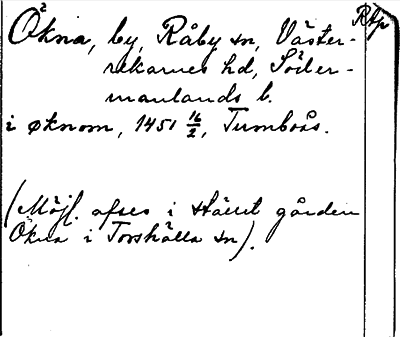 Ökna, by, Råby sn, Väster-
rekarnes hd, Söder-
manlands l.
i øknom, 1451 16/2, Tumboås.
(Möjl. afses i stället gården
Ökna i Torshälla sn).